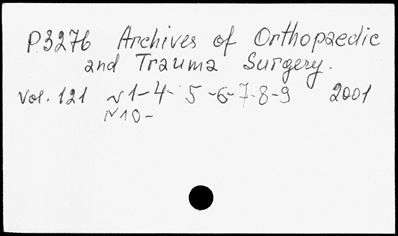 P3276 Archives of Orthopaedic
and Trauma Surgery.
Vol. 121 N1-4- 5-6-7-8-9 2001
N10-